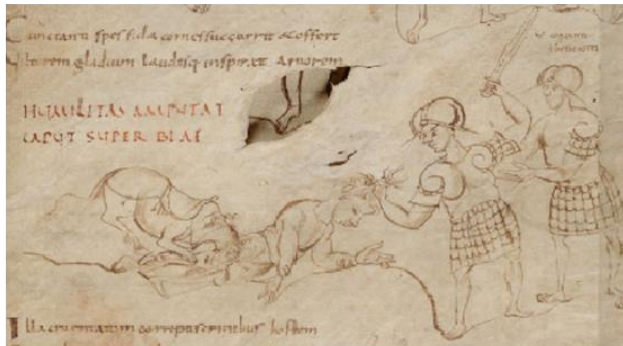 Cunctanti spes fida comes succurrit & offert
Ultorem gladium laudisq inspirat amorem
HUMILITAS AMPUTAT
CAPUT SUPERBIAE
Illa cruentatam correptis crinibus hostem